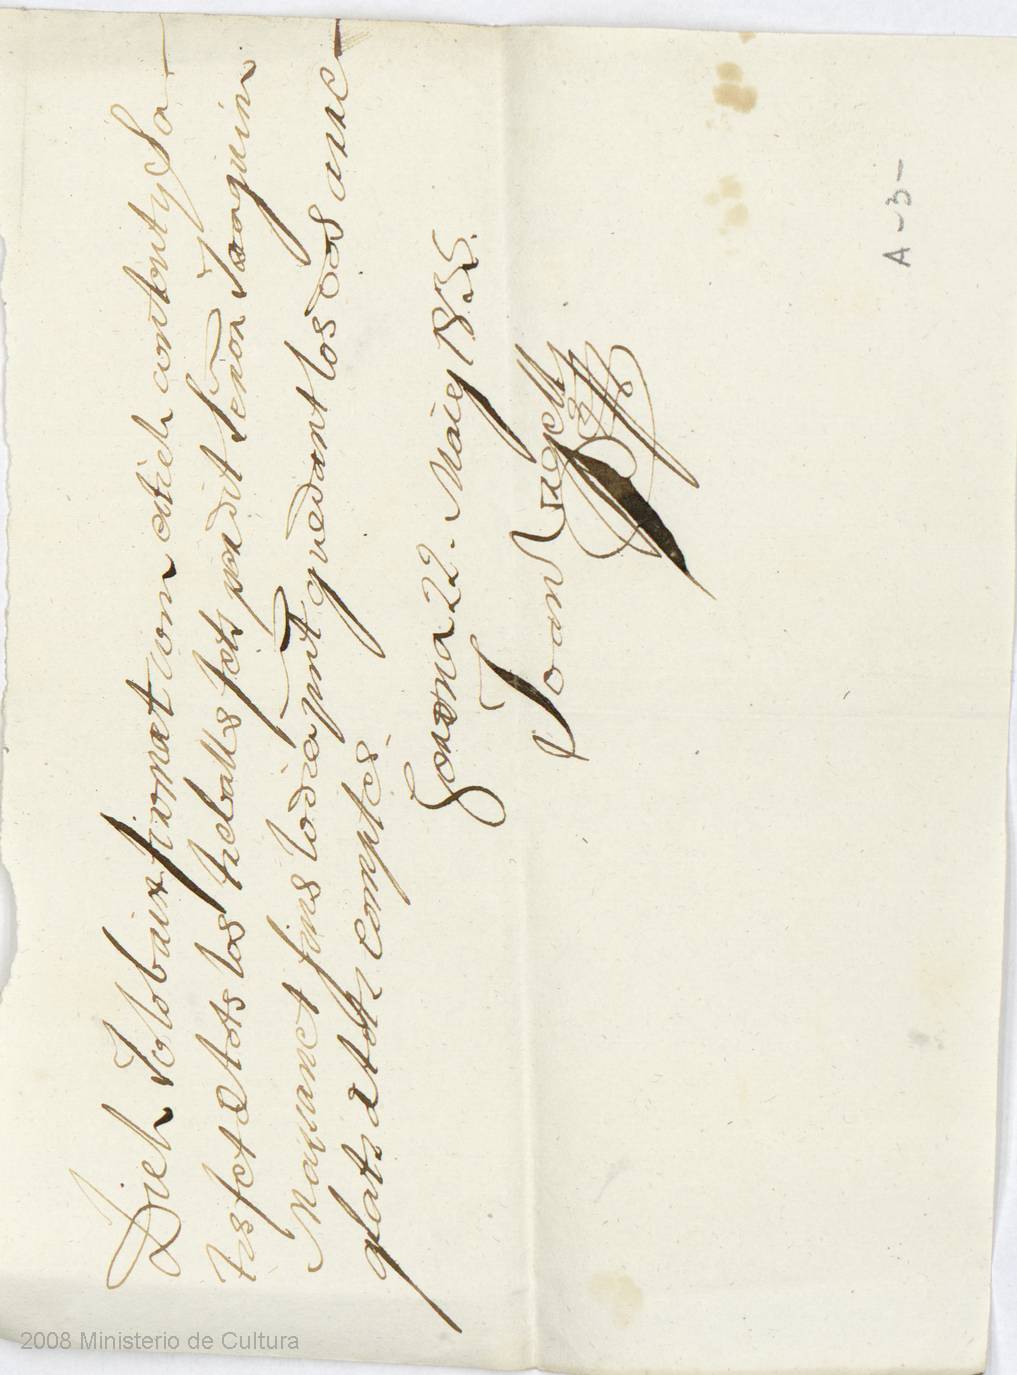 Dich Jo lobaix firmat com estich content y Sa-
tisfet de tots los treballs fets per dit Señor Joaquim
Navanet fins lo dia pnt quedant los dos arre-
glats de tots comptes.
Gerona 22. Maig 1835.
Joan
A-3-
2008 Ministerio de Cultura